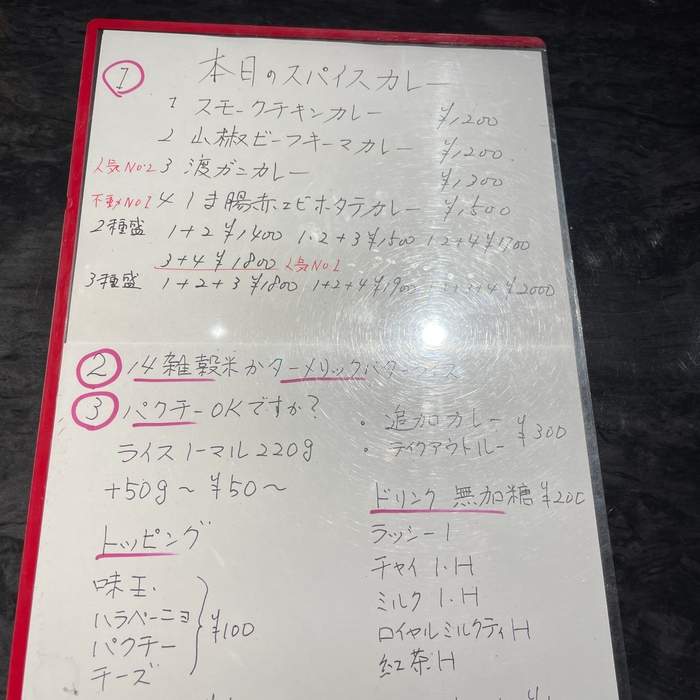 ① 本日のスパイスカレー
1 スモークチキンカレー ¥1,200
2 山椒ビーフキーマカレー ¥1,200
人気No.2 3 渡ガニカレー ¥1,300
不動No1 4 しま腸赤エビホタテカレー ¥1,500
2種盛 1+2 ¥1400 1.2+3 ¥1500 1.2+4 ¥1700
3+4 ¥1800 人気No1
3種盛 1+2+3 ¥1800 1+2+4 ¥1900 +4 ¥2000
② 14雑穀米かターメリックバターライス
③ パクチーOKですか?
ライスノーマル220g
+50g~¥50~
・追加カレー
・テイクアウトルー ¥300
トッピング
味玉
ハラペーニョ
パクチー
チーズ
¥100
ドリンク 無加糖 ¥200
ラッシー I
チャイ I・H
ミルク I・H
ロイヤルミルクティ H
紅茶・H